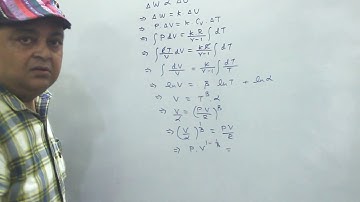 ΔW ∝ ΔU
⇒ ΔW = k ΔU
⇒ P. ΔV = k Cv ΔT
⇒ ∫ P dV = kR/γ-1 ∫ dT
⇒ ∫ RT/V dV = kR/γ-1 ∫ dT
⇒ ∫ dV/V = k/γ-1 ∫ dT/T
⇒ lnV = β lnT + lnα
⇒ V = T^β α
⇒ V/α = (P.V/R)^β
⇒ (V/α)^1/β = PV/R
⇒ P. V^1-1/β =